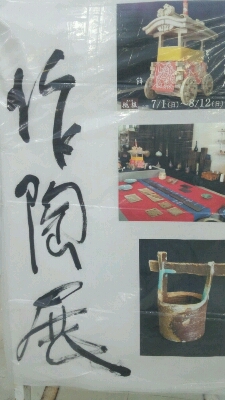 作陶展
7/1(日)～8/12(日)